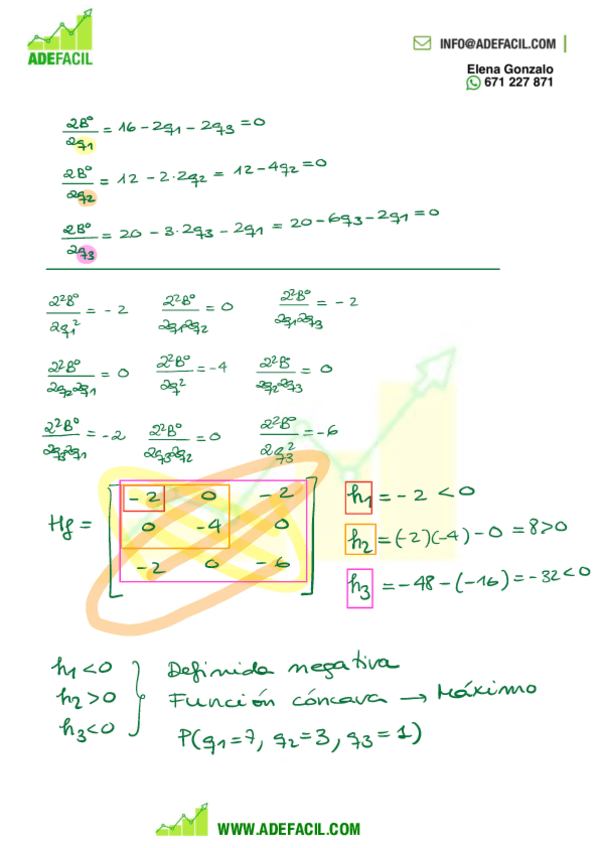 ADEFACIL
INFO@ADEFACIL.COM
Elena Gonzalo
671 227 871
∂B°/∂q1 = 16 - 2q1 - 2q3 = 0
∂B°/∂q2 = 12 - 2·2q2 = 12 - 4q2 = 0
∂B°/∂q3 = 20 - 3·2q3 - 2q1 = 20 - 6q3 - 2q1 = 0
∂²B°/∂q1² = -2 ∂²B°/∂q1∂q2 = 0 ∂²B°/∂q1∂q3 = -2
∂²B°/∂q2∂q1 = 0 ∂²B°/∂q² = -4 ∂²B°/∂q2∂q3 = 0
∂²B°/∂q3∂q1 = -2 ∂²B°/∂q3∂q2 = 0 ∂²B°/∂q3² = -6
-2 0 -2 h1 = -2 < 0
Hf = 0 -4 0 h2 = (-2)(-4) - 0 = 8 > 0
-2 0 -6 h3 = -48 - (-16) = -32 < 0
h1 < 0 Definida negativa
h2 > 0 Función cóncava → Máximo
h3 < 0 P(q1=7, q2=3, q3=1)
WWW.ADEFACIL.COM